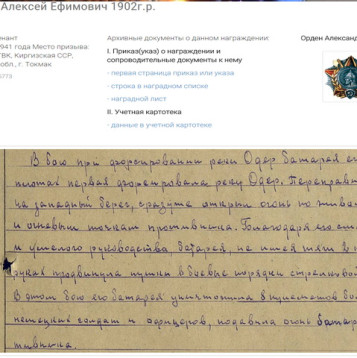 Алексей Ефимович 1902г.р.
нант
Архивные документы о данном награждении:
Орден Александ
941 года Место призыва:
ВК, Киргизская ССР,
обл., г. Токмак
I. Приказ(указ) о награждении и
сопроводительные документы к нему
- первая страница приказ или указа
- строка в наградном списке
- наградной лист
II. Учетная картотека
- данные в учетной картотеке
В бою при форсировании реки Одер батарея е
первая форсировала реку Одер. Переправ
на западный берег, сразу же открыл огонь по жива
и огневым точкам противника. Благодаря его
и умелого руководства, батарея, не имея
руках продвинула пушки в боевые порядки стрелково
В этом бою его батарея уничтожила 8 пулеметов
немецких солдат и офицеров, подавила огонь батар
тивника.